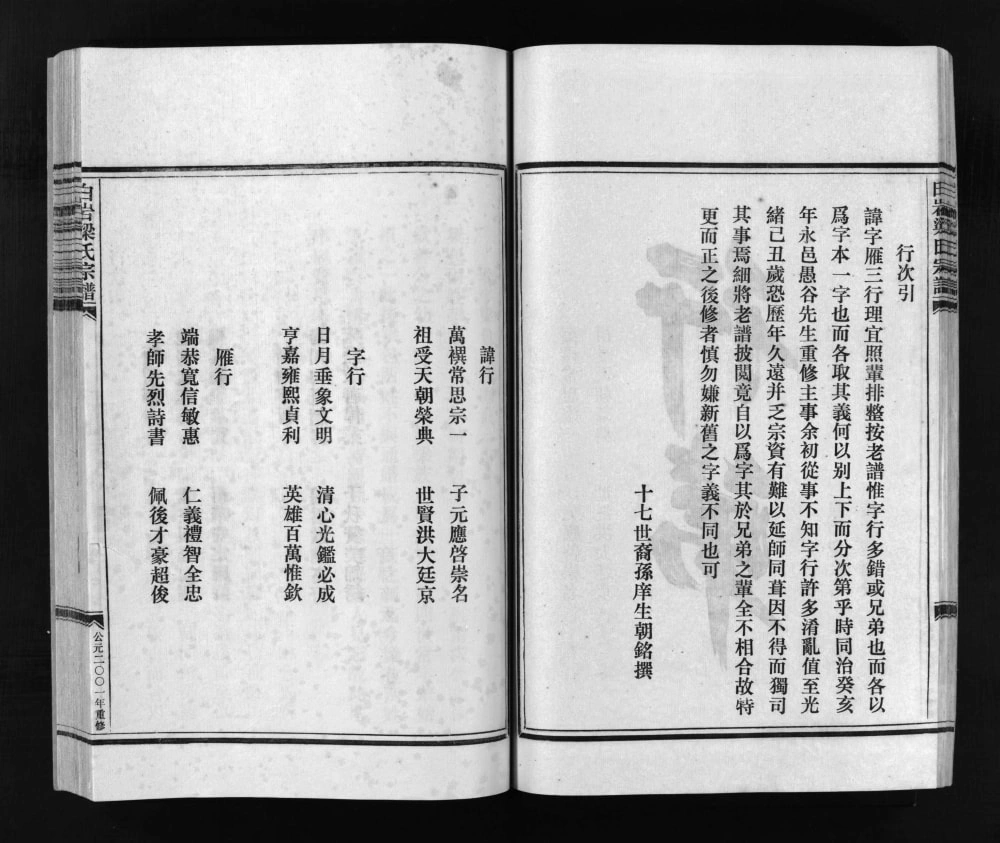 白岩梁氏宗譜
行次引
諱字雁三行理宜照輩排整按老譜惟字行多錯或兄弟也而各以
爲字本一字也而各取其義何以别上下而分次第乎時同治癸亥
年永邑愚谷先生重修主事余初從事不知字行許多淆亂值至光
緒己丑歲恐歷年久遠并乏宗資有難以延師同葺因不得而獨司
其事焉細將老譜披閲竟自以爲字其於兄弟之輩全不相合故特
更而正之後修者慎勿嫌新舊之字義不同也可
十七世裔孫庠生朝銘撰
諱行
萬禩常思宗一 子元應啓崇名
祖受天朝榮典 世賢洪大廷京
字行
日月垂象文明 清心光鑑必成
亨嘉雍熙貞利 英雄百萬惟欽
雁行
端恭寬信敏惠 仁義禮智全忠
孝師先烈詩書 佩後才豪超俊
白岩梁氏宗譜
公元二〇〇一年重修